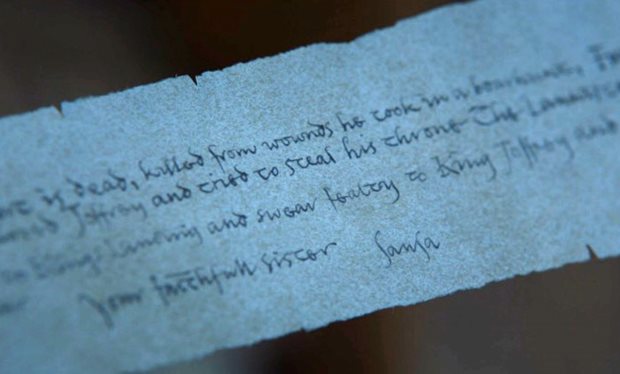 is dead, killed from wounds he took in a boar hunt,
Joffrey and tried to steal his throne The
Kings Landing and swear fealty to King Joffrey and
Your faithfull sister Sansa